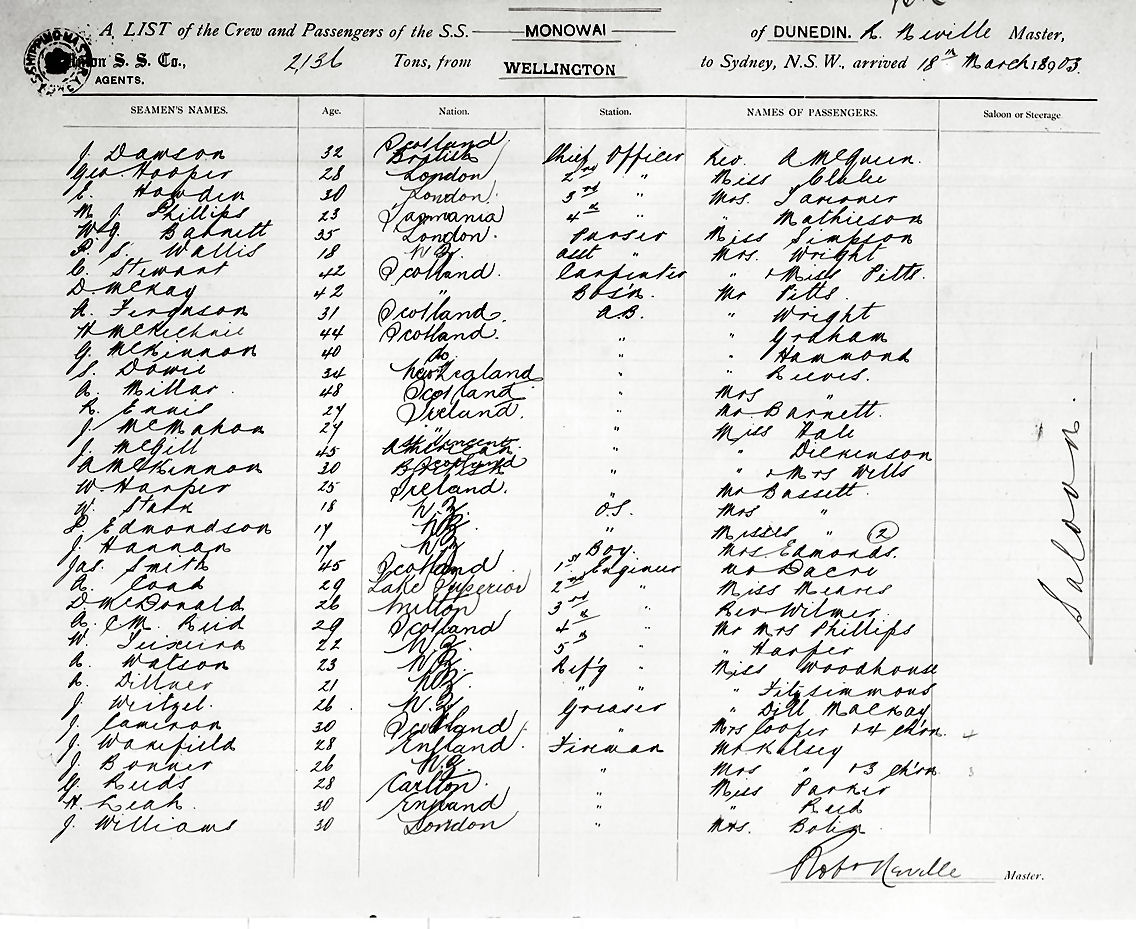 A LIST of the Crew and Passengers of the S.S. MONOWAI of DUNEDIN. R. Neville Master,
S. S. Co., AGENTS. 2136 Tons, from WELLINGTON to Sydney, N.S.W., arrived 18th March 18903.
SEAMEN'S NAMES. Age. Nation. Station. NAMES OF PASSENGERS. Saloon or Steerage
J. Dawson 32 Scotland British Chief Officer Rev. A McQueen.
Geo Hooper 28 London 2nd " Miss Clarke
E. Howden 30 London. 3rd " Mrs.
M. J. Phillips 23 Tasmania 4th " " Mathieson
W. G. Barnett 35 London. Purser Miss Simpson
P. S. Wallis 18 N.Z. asst " Mrs. Wright
C. Stewart 42 Scotland. Carpenter " + Miss Pitts.
D. McKay 42 " Bos'n. Mr Pitts.
A. Ferguson 31 Scotland. A.B. " Wright
H McKechnie 44 Scotland. " " Graham
G. McKinnon 40 do " " Hammond
S. Dowie 34 New Zealand " " Reeves.
A. Millar 48 Scotland " Mrs "
R. Ennis 27 Ireland. " Mr Barnett.
J. McMahon 27 " " Miss Hale
J. McGill 45 St Vincent American " " Dickinson
A McKinnon 30 British Scotland " " + Mrs Wills
W. Harper 25 Ireland. " Mr Bassett.
W. Stark 18 N.Z. O.S. Mrs "
Edmondson 17 N.Z. " Misses " 2
J. Hannan 17 N.Z. Boy. Mrs Edmonds.
Jas. Smith 45 Scotland 1st Engineer Mr Dacre
A. Cook 29 Lake Superior 2nd " Miss Meares
D. McDonald 26 Milton 3rd " Rev Wilmer
A. C. M. Reid 29 Scotland 4th " Mr Mrs Phillips
W. Teixeira 22 N.Z. 5th " " Harper
A. Watson 23 N.Z. Ref'g " Miss Woodhouse
R. Dillner 21 N.Z. " " " Fitzsimmons
J. Weitzel. 26 N.Z. Greaser " Dill Mackay
J. Cameron 30 Scotland " Mrs Cooper + 4 ch'rn.
J. Wakefield 28 England. Fireman Mr Kelsey
J. Bonner 26 N.Z. " Mrs " + 3 ch'rn 3
G. Reids 28 Carlton " Miss Parker
H. Leah. 30 England " " Reid
J. Williams 30 London " Mrs.
Saloon.
Robt Neville Master.